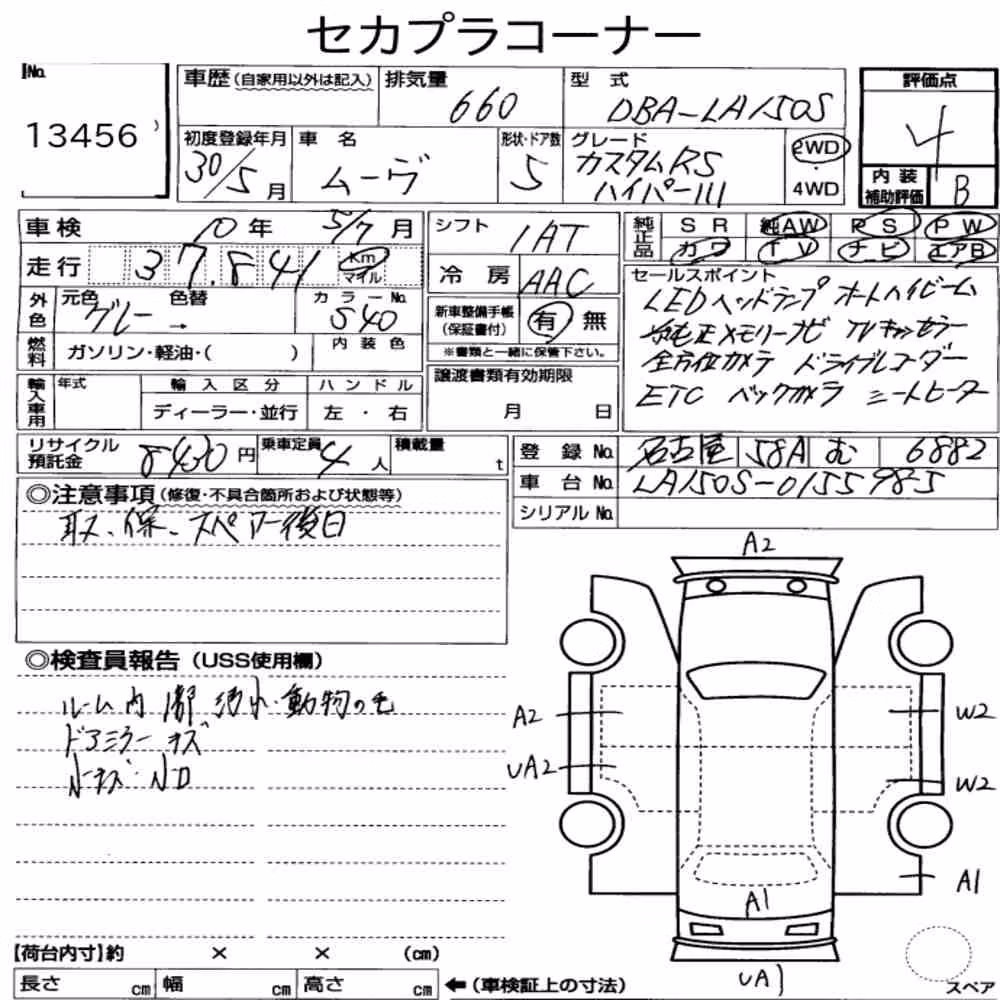 セカプラコーナー
No. 13456
車歴(自家用以外は記入) 排気量 660 型式 DBA-LA150S 評価点 4
初度登録年月 30/5月 車名 ムーヴ 形状・ドア数 5 グレード カスタムRS ハイパーIII 2WD・4WD
内装補助評価 B
車検 10年 5/7月 シフト IAT 純正品 SR 純AW PS PW
カワ TV ナビ エアB
走行 37,841 Km マイル 冷房 AAC
外色 元色 グレー 色替 → カラーNo. S40
新車整備手帳(保証書付) 有 無
※書類と一緒に保管下さい。
セールスポイント
LEDヘッドランプ オートハイビーム
純正メモリーナビ TVキャンセラー
全方位カメラ ドライブレコーダー
ETC バックカメラ シートヒーター
燃料 ガソリン・軽油・( ) 内装色
譲渡書類有効期限
月 日
輸入車用 年式 輸入区分 ハンドル
ディーラー・並行 左・右
リサイクル預託金 8430円 乗車定員 4人 積載量 t
登録No. 名古屋 58A む 6882
車台No. LA150S-0155985
シリアルNo.
◎注意事項(修復・不具合箇所および状態等)
取、保、スペアー後日
◎検査員報告(USS使用欄)
ルーム内 汚れ・動物の毛
ドアミラー キズ
A2
A2
UA2
W2
W2
A1
A1
UA1
【荷台内寸】約 × × (cm)
長さ cm 幅 cm 高さ cm ←(車検証上の寸法)
スペア